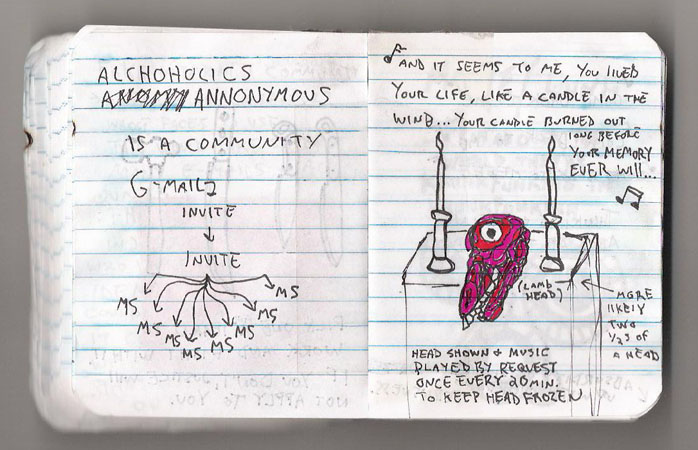 ALCHOHOLICS
ANNONYMOUS
IS A COMMUNITY
G-MAIL
INVITE
INVITE
MS
MS
MS
MS
MS
MS
MS
MS
AND IT SEEMS TO ME, YOU LIVED
YOUR LIFE, LIKE A CANDLE IN THE
WIND... YOUR CANDLE BURNED OUT
LONG BEFORE
YOUR MEMORY
EVER WILL...
(LAMB
HEAD)
MORE
LIKELY
TWO
1/2S OF
A HEAD
HEAD SHOWN & MUSIC
PLAYED BY REQUEST
ONCE EVERY 20 MIN.
TO KEEP HEAD FROZEN